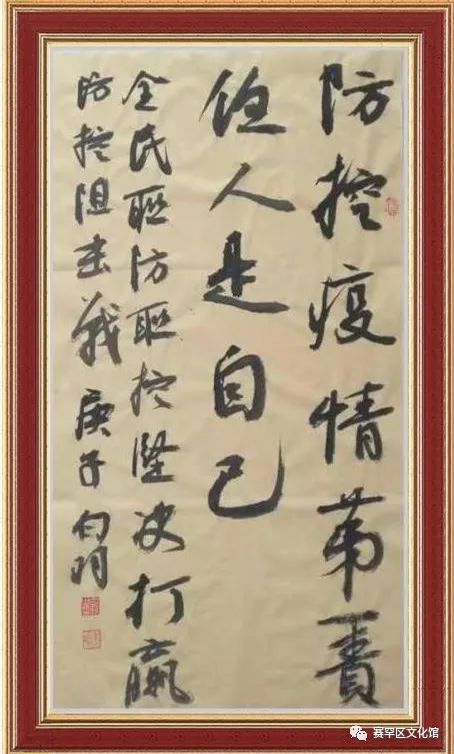 防控疫情第一責
任人是自己
全民联防联控堅决打赢
防控阻击战 庚子
赛罕区文化馆